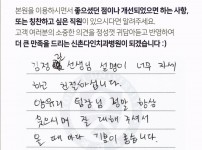 본원을 이용하시면서 좋으셨던 점이나 개선되었으면 하는 사항,
또는 칭찬하고 싶은 직원이 있으시다면 알려주세요.
고객 여러분의 소중한 의견을 정성껏 귀담아듣고 반영하여
더 큰 만족을 드리는 신촌다인치과병원이 되겠습니다 :)
김정 선생님 설명이 너무 자세
하고 친절하십니다.
양유리 팀장님 정말 항상
웃으며 잘 대해 주셔서
올 때 마다 기분이 좋습니다.